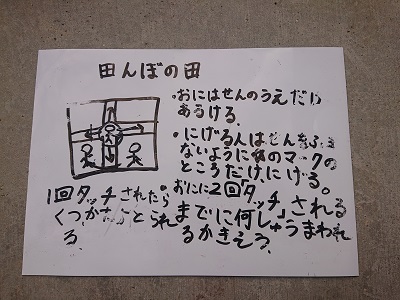 田んぼの田
・おにはせんのうえだけ
あるける。
・にげる人はせんをふま
ないように のマークの
ところだけにげる。
1回タッチされたら
くつがかたっぽとられ
る。
・おにに2回タッチされる
までに何しゅうまわれ
るかきそう。